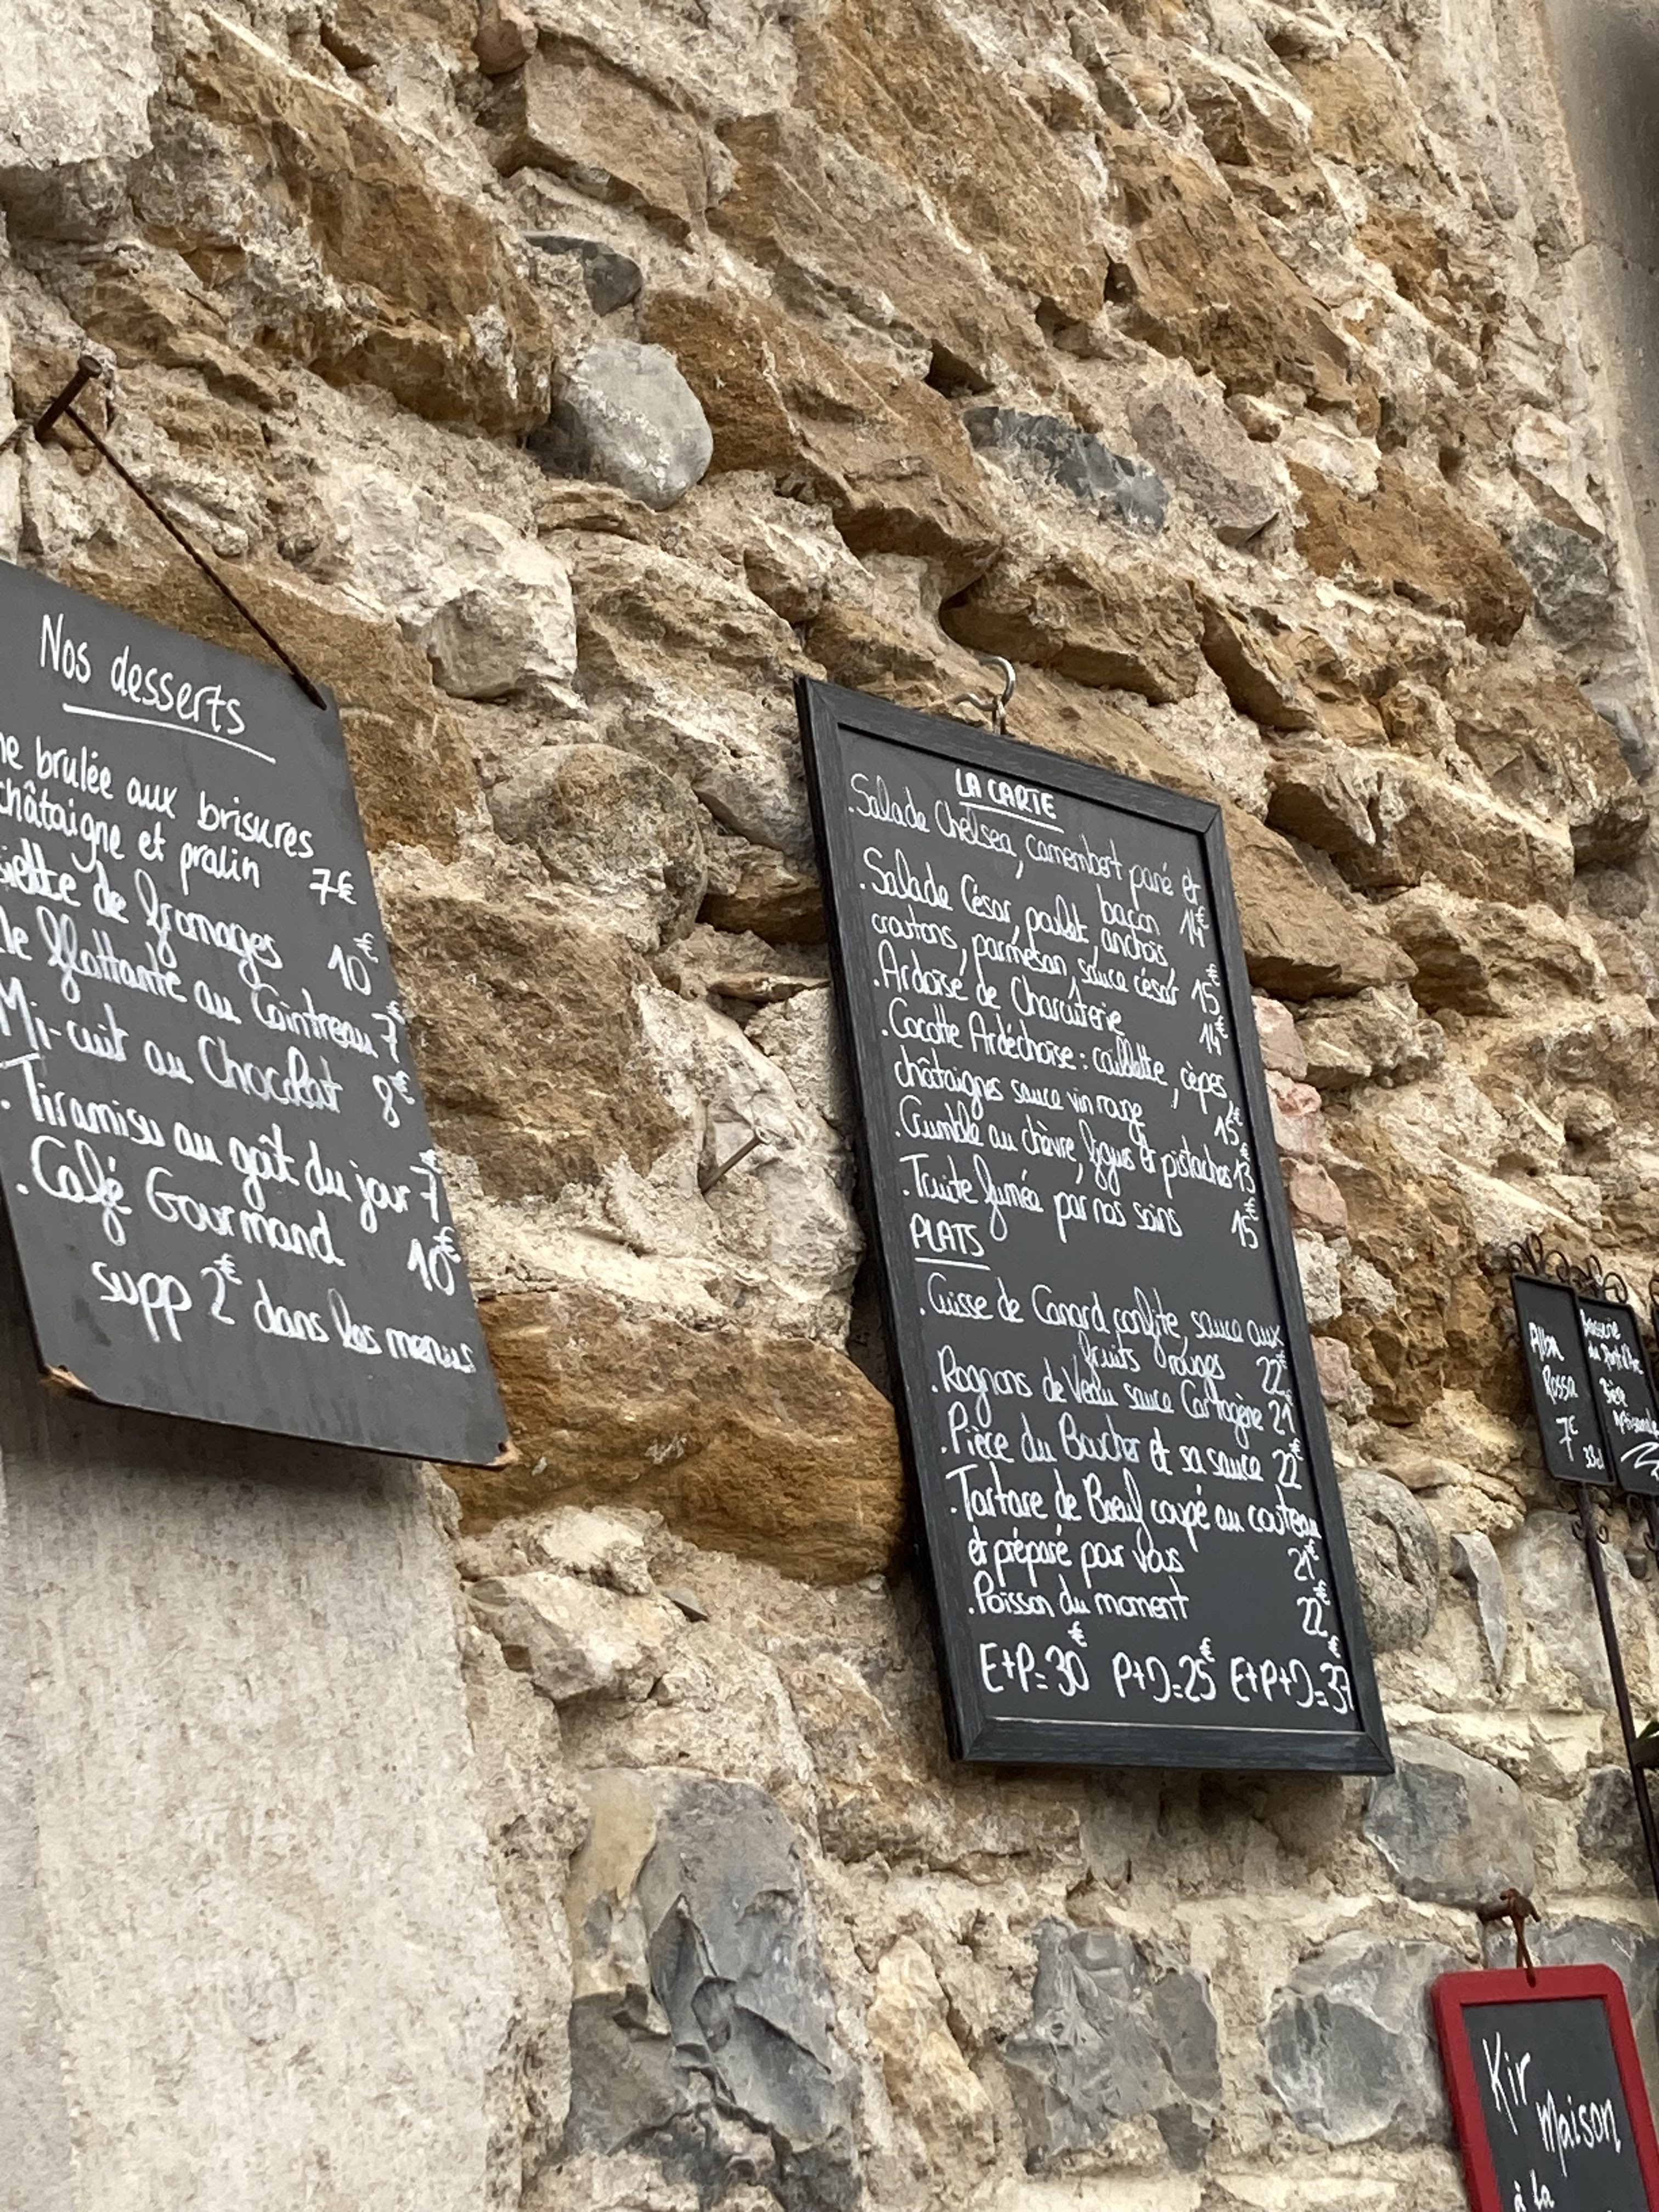 Nos desserts
brulée aux brisures
châtaigne et pralin 7€
de fromages 10€
flottante au Cointreau 7€
Mi-cuit au Chocolat 8€
. Tiramisu au goût du jour 7€
. Café Gourmand 10€
supp 2€ dans les menus
LA CARTE
. Salade Chelsea, camembert pané et
bacon 14€
. Salade César, poulet, anchois,
croutons, parmesan, sauce césar 15€
. Ardoise de Charcuterie 14€
. Cocotte Ardéchoise : caillette, cèpes,
châtaignes sauce vin rouge 15€
. Crumble au chèvre, figues et pistaches 13€
. Truite fumée par nos soins 15€
PLATS
. Cuisse de Canard confite, sauce aux
fruits rouges 22€
. Rognons de Veau sauce Cartagène 21€
. Pièce du Boucher et sa sauce 22€
. Tartare de Boeuf coupé au couteau
et préparé pour vous 21€
. Poisson du moment 22€
E+P=30€ P+D=25€ E+P+D=37€
Alba
Rossa
7€
33cl
Brasserie
du Pont d'Arc
Bière
Artisanale
Kir
Maison
à la